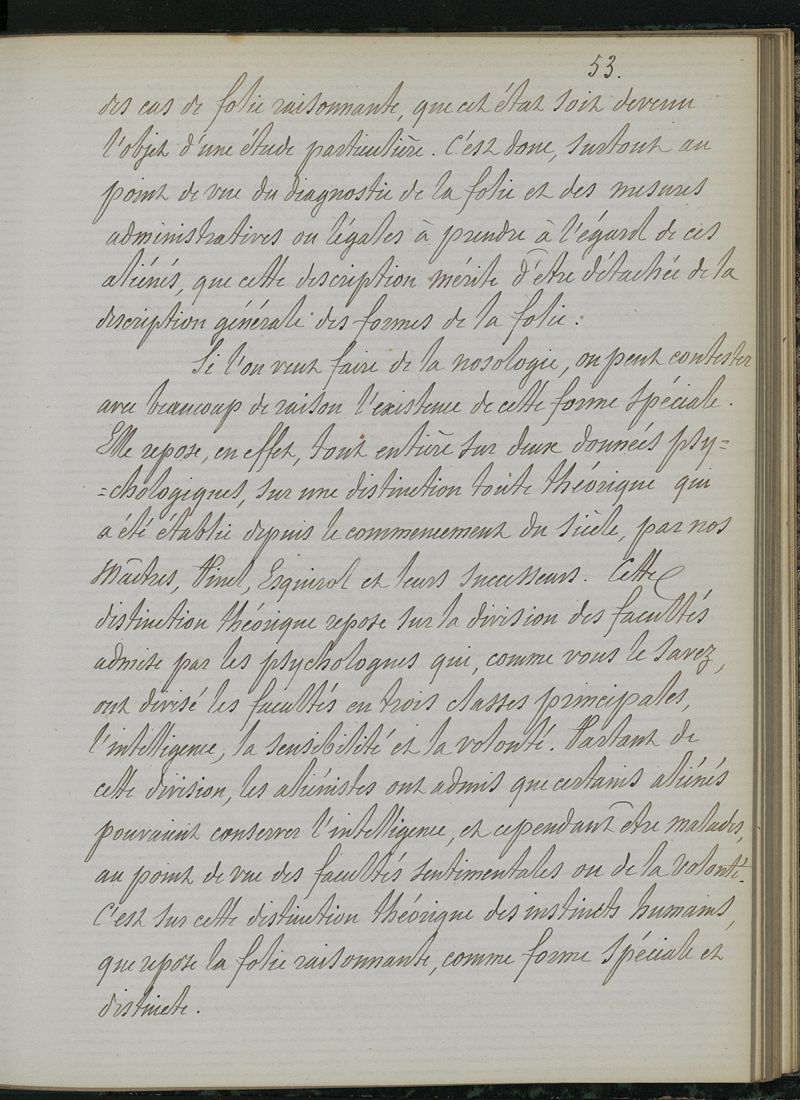 53.
des cas de folie raisonnante, que cet état soit devenu
l'objet d'une étude particulière. C'est donc, surtout au
point de vue du diagnostic de la folie et des mesures
administratives ou légales à prendre à l'égard de ces
aliénés, que cette description mérite d'être détachée de la
description générale des formes de la folie.
Si l'on veut faire de la nosologie, on peut contester
avec beaucoup de raison l'existence de cette forme spéciale.
Elle repose, en effet, tout entière sur deux données psy=
=chologiques, sur une distinction toute théorique qui
a été établie depuis le commencement du siècle, par nos
Maîtres, Pinel, Esquirol et leurs successeurs. Cette
distinction théorique repose sur la division des facultés
admise par les psychologues qui, comme vous le savez,
ont divisé les facultés en trois classes principales,
l'intelligence, la sensibilité et la volonté. Partant de
cette division, les aliénistes ont admis que certains aliénés
pouvaient conserver l'intelligence, et cependant être malades,
au point de vue des facultés sentimentales ou de la volonté.
C'est sur cette distinction théorique des instincts humains,
que repose la folie raisonnante, comme forme spéciale et
distincte.